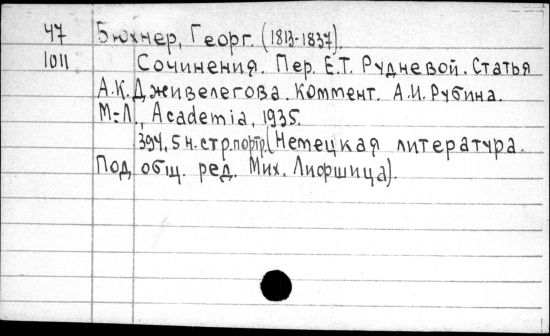 47 Бюхнер, Георг. (1813-1837).
1011 Сочинения. Пер. Е.Т. Рудневой. Статья
А.К. Дживелегова. Коммент. А.И. Рубина.
М.-Л., Academia, 1935.
394, 5 н. стр. портр. (Немецкая литература.
Под общ. ред. Мих. Лифшица).